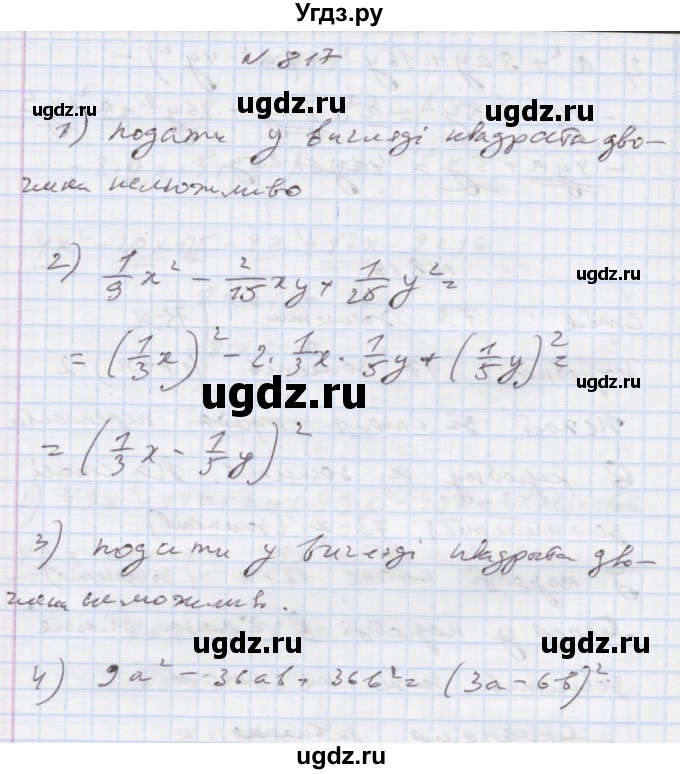 Угдз.ру
N 817
ugdz.ru
ugdz.ru
1) подати у вигляді квадрата дво-
члена неможливо
2) 1/9 x² - 2/15 xy + 1/25 y² =
ugdz.ru
= (1/3 x)² - 2 · 1/3 x · 1/5 y + (1/5 y)² =
ugdz.ru
= (1/3 x - 1/5 y)²
ugdz.ru
3) подати у вигляді квадрата дво-
члена неможливо.
ugdz.ru
ugdz.ru
4) 9a² - 36ab + 36b² = (3a - 6b)²
ugdz.ru
ugdz.ru